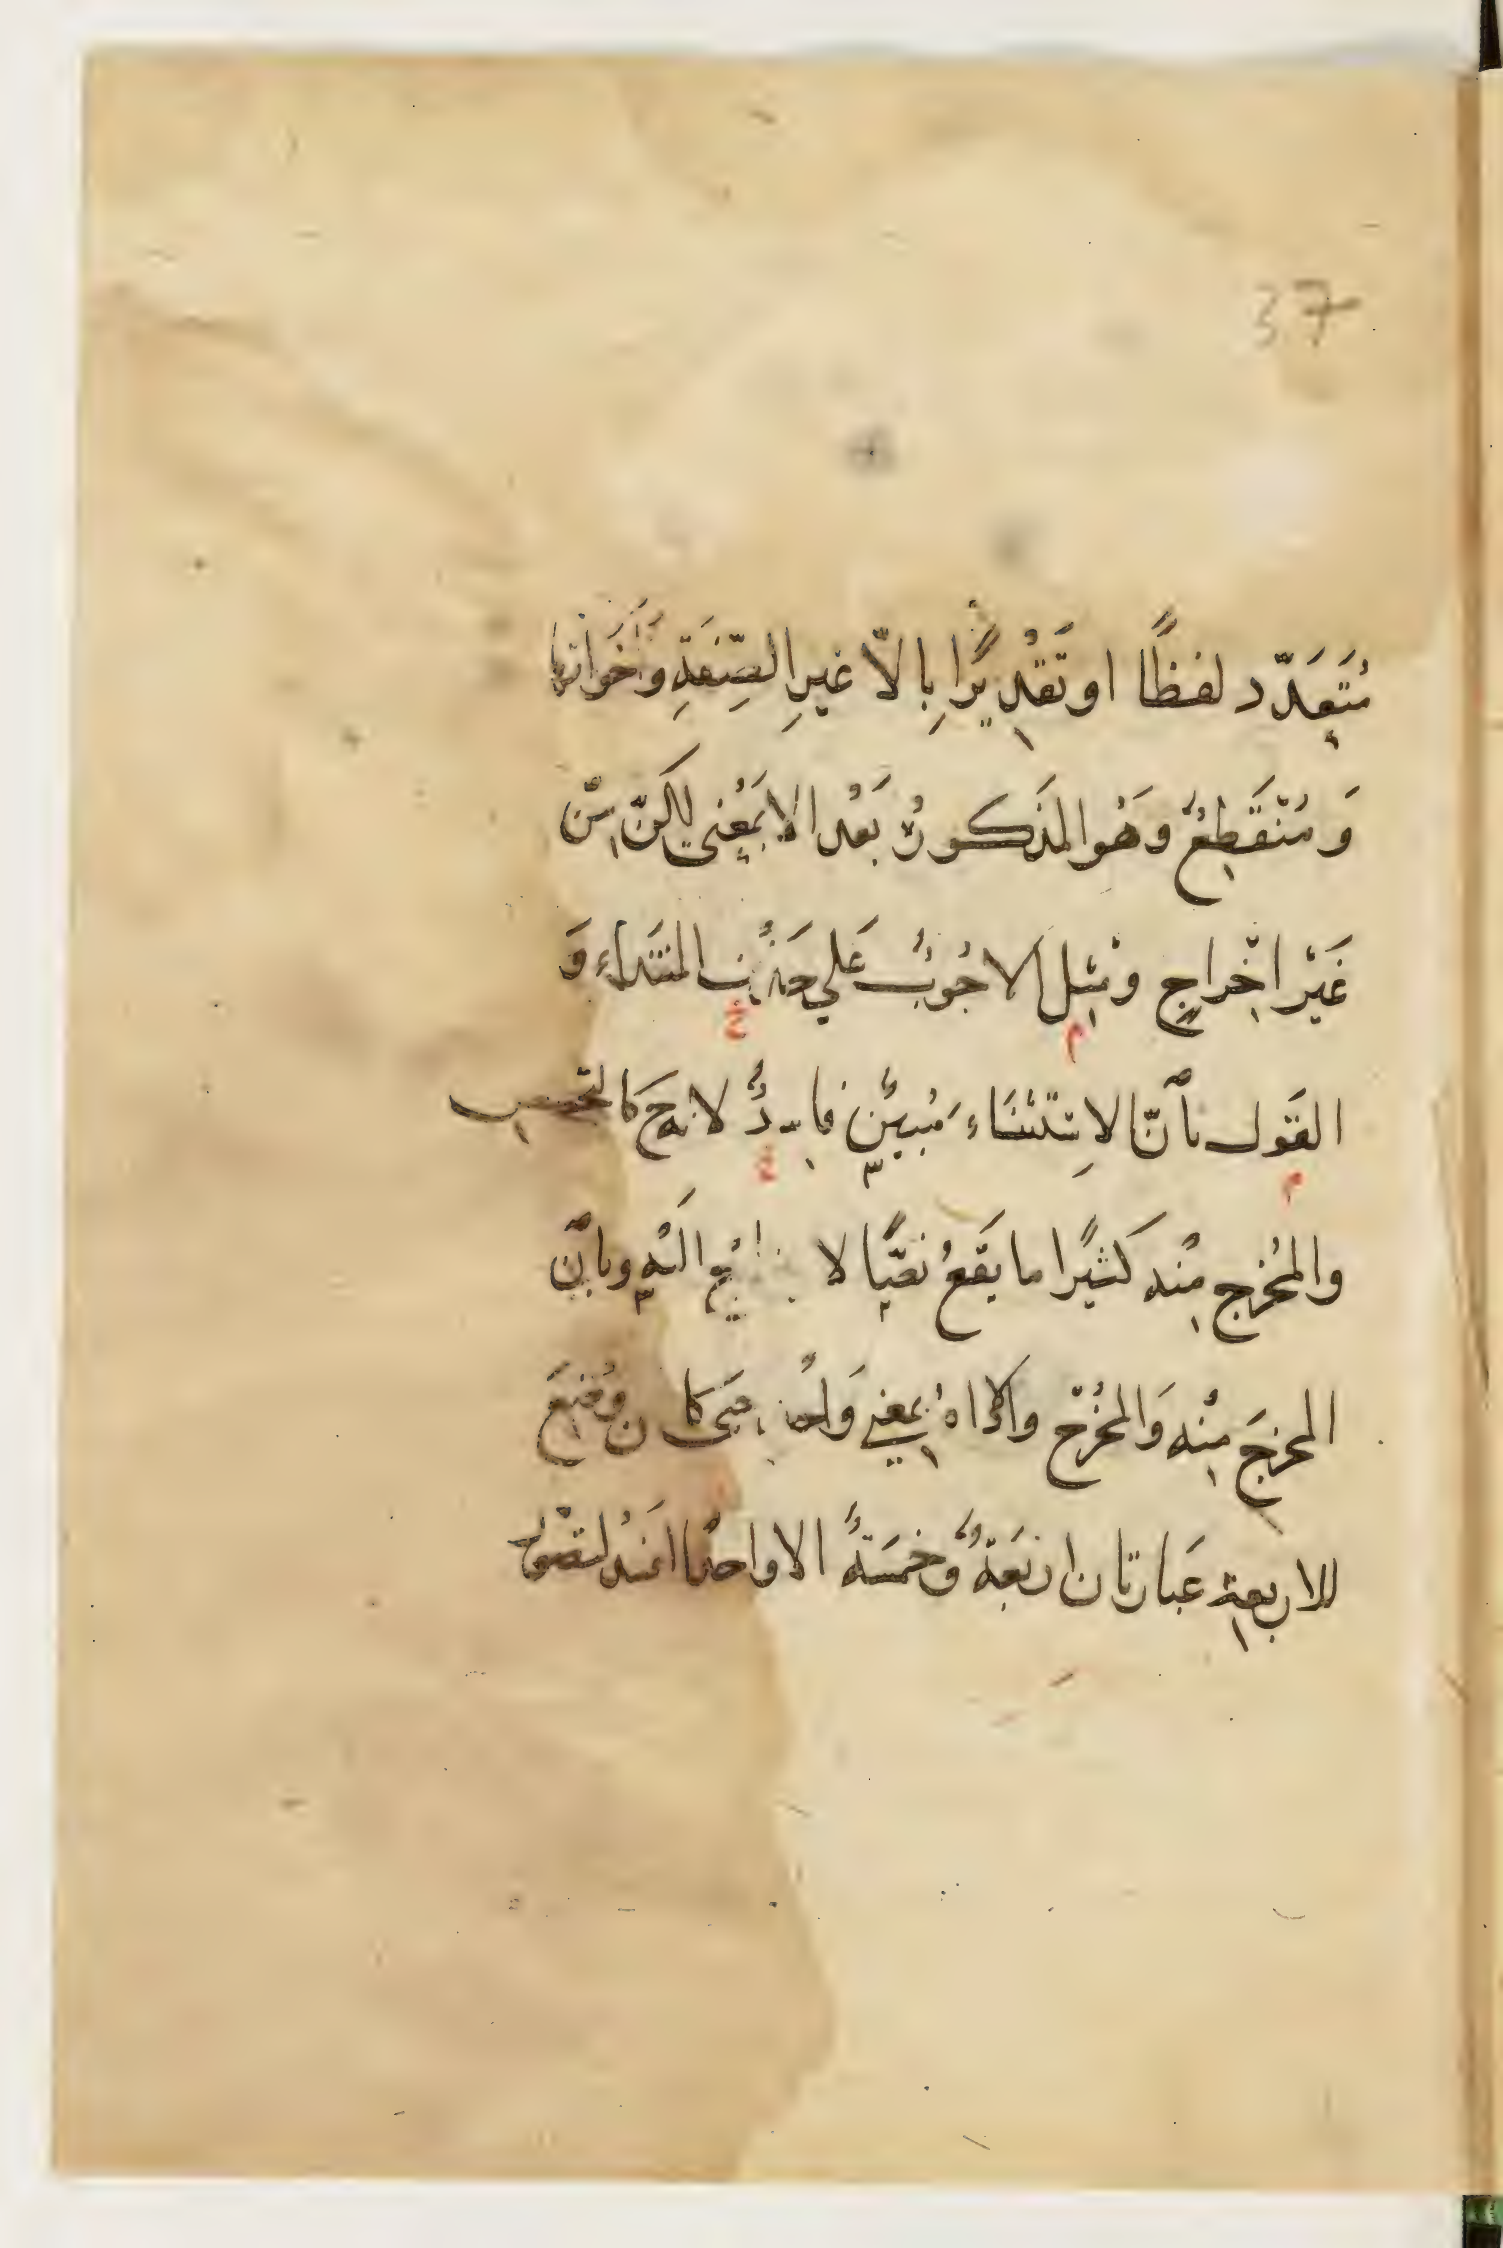 37
مُتَعَدّد لفظًا او تَقْدِيرًا بِالّا غيرِ الصِّفَةِ وَاَخَوَاتها
وَ مُنْقَطِعٌ وَهُوَ المذكورُ بَعْدَ الا بمَعْنى لكنّ مِن
غَيْر اِخْراجٍ و مِثل لا جُوبُ عَلي حذف المبتداء وَ
القَول بأنّ الاِستثنَاء مُبيّن لا يح كالتخصيص
والمُخرج مِنْه كَثيرًا ما يَقَعُ نصًّا لا اليْهِ وبأنّ
المخرجَ مِنْه وَالمُخْرَج والاداة بمعني وَاحد حَتى كان وُضِعَ
للاربعة عَبارتان اربَعَةٌ وَخمسَةٌ الا واحدًا